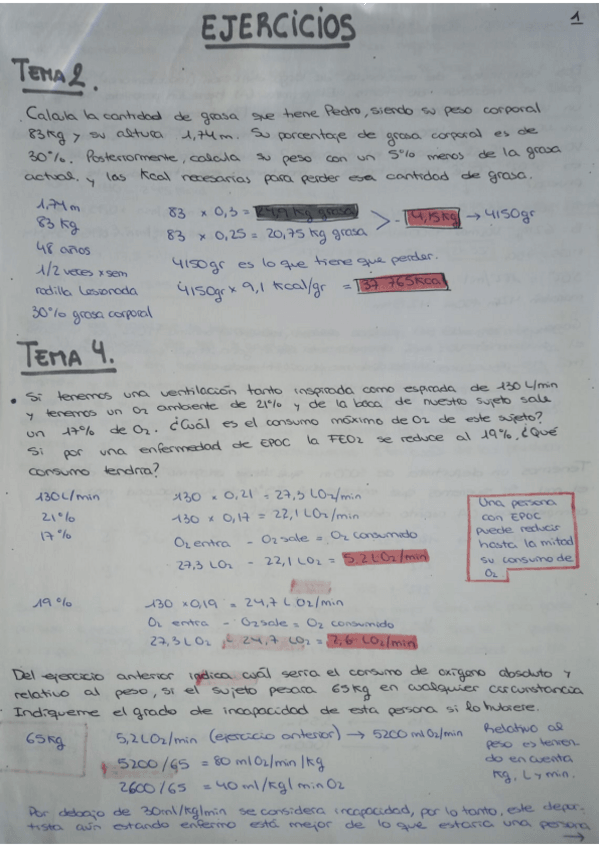 1
EJERCICIOS
TEMA 2.
Calcula la cantidad de grasa que tiene Pedro, siendo su peso corporal
83kg y su altura 1,74m. Su porcentaje de grasa corporal es de
30%. Posteriormente, calcula su peso con un 5% menos de la grasa
actual, y las Kcal necesarias para perder esa cantidad de grasa.
1,74m
83 kg
48 años
1/2 veces x sem
rodilla lesionada
30% grasa corporal
83 x 0,3 = 24,9 kg grasa
83 x 0,25 = 20,75 kg grasa
> - 4,15kg → 4150gr
4150gr es lo que tiene que perder.
4150gr x 9,1 Kcal/gr = 37.765Kcal
TEMA 4.
• Si tenemos una ventilación tanto inspirada como espirada de 130 L/min
y tenemos un O2 ambiente de 21% y de la boca de nuestro sujeto sale
un 17% de O2. ¿Cuál es el consumo máximo de O2 de este sujeto?
Si por una enfermedad de EPOC la FEO2 se reduce al 19%. ¿Qué
consumo tendría?
130L/min
21%
17%
130 x 0,21 = 27,3 LO2/min
130 x 0,17 = 22,1 LO2/min
O2 entra - O2 sale = O2 consumido
27,3 LO2 - 22,1 LO2 = 5,2 LO2/min
Una persona
con EPOC
puede reducir
hasta la mitad
su consumo de
O2
19%
130 x 0,19 = 24,7 L O2/min
O2 entra - O2 sale = O2 consumido
27,3 LO2 - 24,7 LO2 = 2,6 LO2/min
Del ejercicio anterior indica cuál sería el consumo de oxígeno absoluto y
relativo al peso, si el sujeto pesara 65kg en cualquier circunstancia
Indiqueme el grado de incapacidad de esta persona si lo hubiere.
65kg
5,2LO2/min (ejercicio anterior) → 5200 mlO2/min
5200/65 = 80 mlO2/min/kg
2600/65 = 40 ml/kg/min O2
Relativo al
peso es tenien
do en cuenta
Kg, L y min.
Por debajo de 30ml/kg/min se considera incapacidad, por lo tanto, este depor-
tista aún estando enfermo está mejor de lo que estaría una persona
→